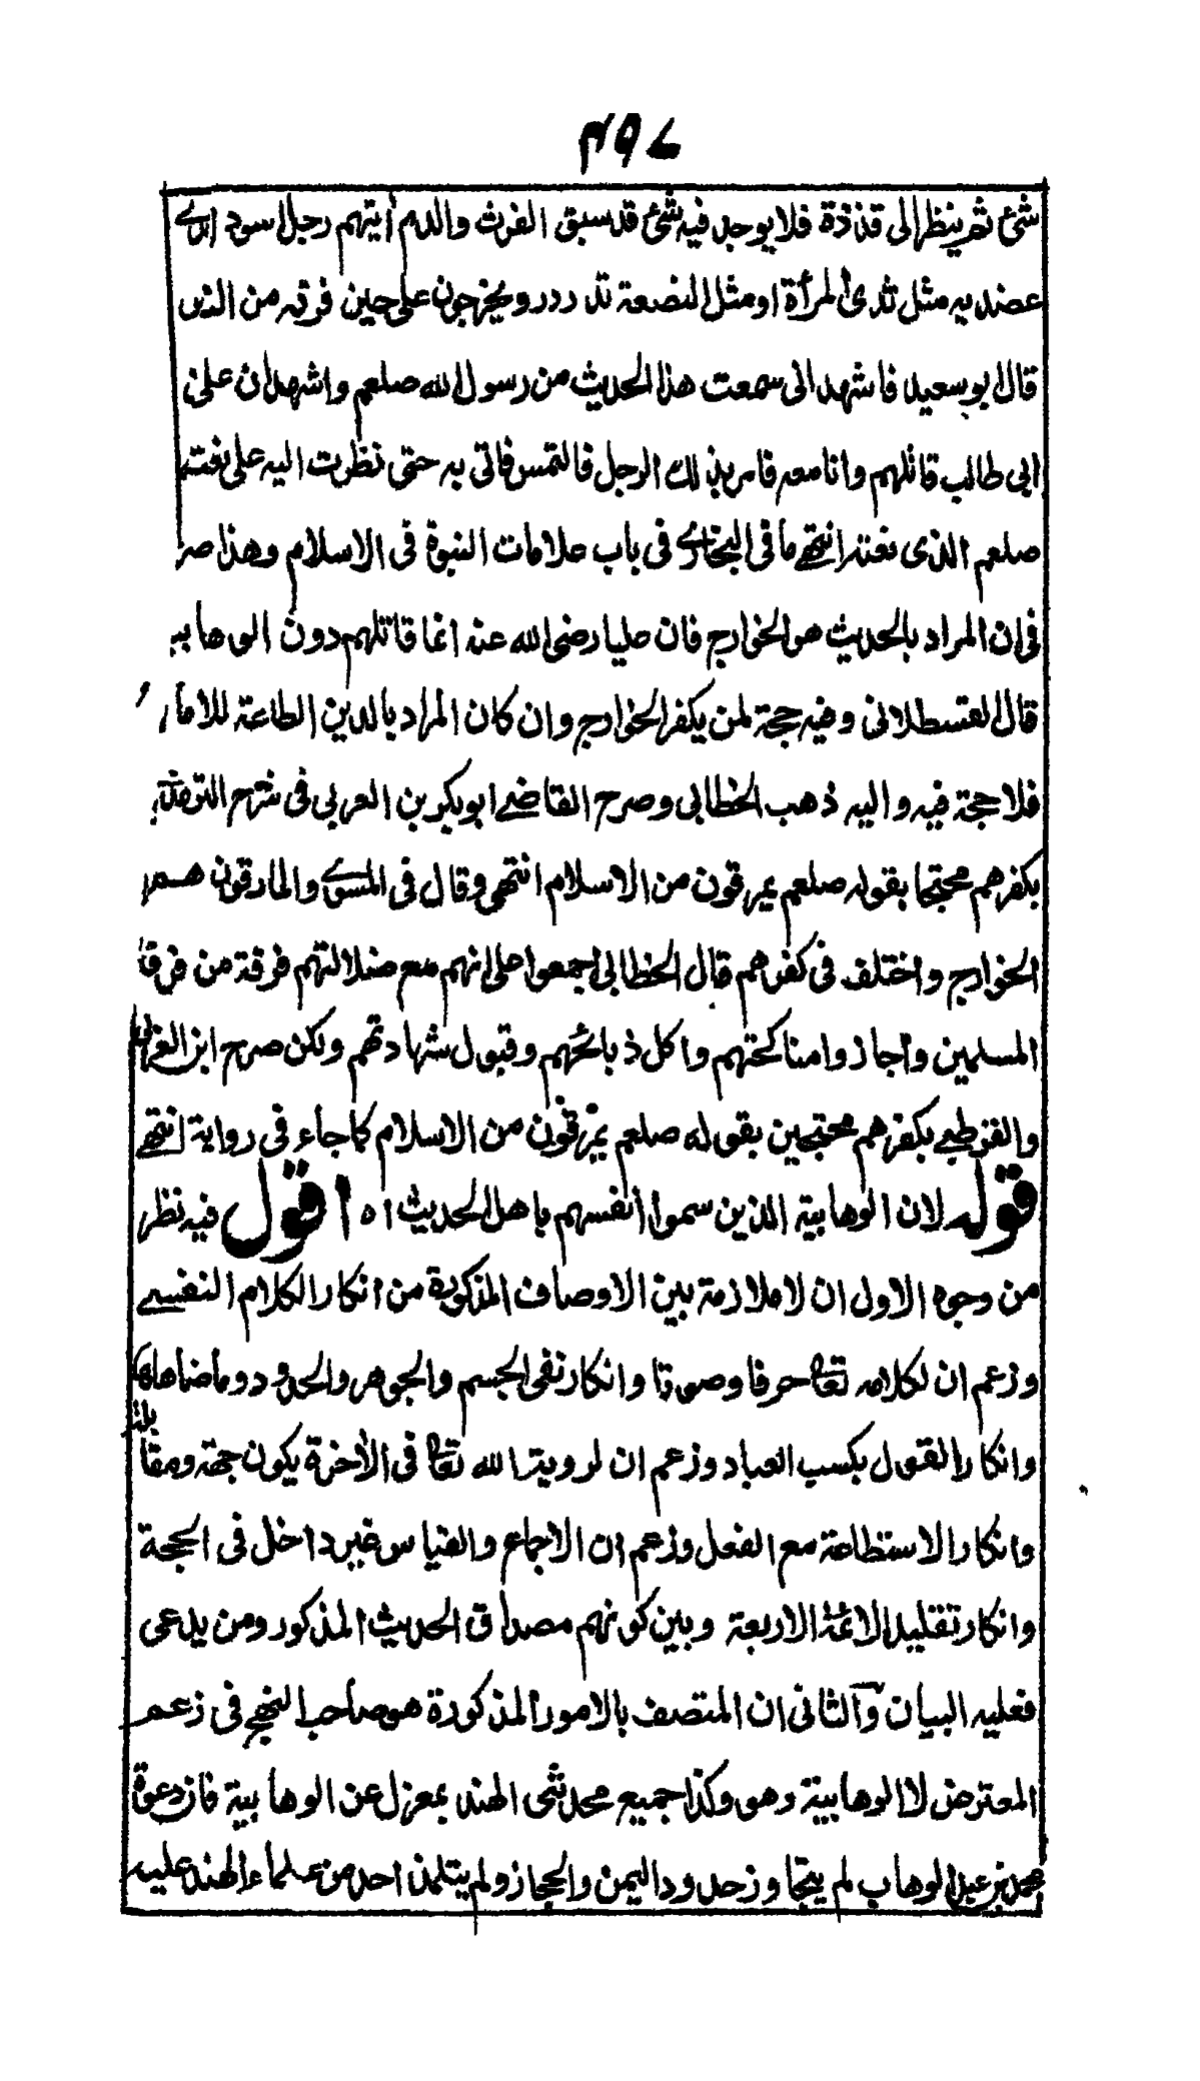 ٤٩٧
شئ ثم ينظر الى قذذة فلا يوجد فيه شئ قد سبق الفرث والدم أيتهم رجل اسود احدى
عضديه مثل ثدى المرأة او مثل البضعة تدردر ويخرجون على حين فرقه من الناس
قال ابو سعيد فاشهد انى سمعت هذا الحديث من رسول الله صلعم واشهد ان على
ابى طالب قاتلهم وانا معه فامر بذلك الرجل فالتمس فاتى به حتى نظرت اليه على نعت
صلعم الذى نعته انتهے ما فى البخارى فى باب علامات النبوة فى الاسلام وهذا صر
فى ان المراد بالحديث هو الخوارج فان عليا رضى الله عنه انما قاتلهم دون الوهابيه
قال القسطلانى وفيه حجة لمن يكفر الخوارج وان كان المراد بالدين الطاعة للامام
فلا حجة فيه واليه ذهب الخطابى وصرح القاضے ابو بكر بن العربى فى شرح الترمذى
بكفرهم محتجا بقوله صلعم يمرقون من الاسلام انتهى وقال فى المسوى والمارقون هم
الخوارج واختلف فى كفرهم قال الخطابى اجمعوا على انهم مع ضلالتهم فرقة من فرق
المسلمين وأجازوا مناكحتهم واكل ذبائحهم وقبول شهادتهم ولكن صرح ابن العربى
والقرطبے بكفرهم محتجين بقوله صلعم يمرقون من الاسلام كما جاء فى رواية انتهے
قوله لان الوهابية الذين سموا أنفسهم باهل الحديث اه اقول فيه نظر
من وجوه الاول ان لا ملازمة بين الاوصاف المذكورة من انكار الكلام النفسے
وزعم ان لكلامه تعالى حرفا وصوتا وانكار نفى الجسم والجوهر والحدود وما ضاهاها
وانكار القول بكسب العباد وزعم ان لروية الله تعالى فى الأخرة يكون جهة ومقابلة
وانكار الاستطاعة مع الفعل وزعم ان الاجماع والقياس غير داخل فى الحجة
وانكار تقليد الائمة الاربعة وبين كونهم مصداق الحديث المذكور ومن يدعى
فعليه البيان والثانى ان المتصف بالامور المذكورة هو صاحب النهج فى زعم
المعترض لا الوهابية وهو وكذا جميع محدثى الهند بمعزل عن الوهابية فان دعوة
محمد بن عبد الوهاب لم يتجاوز حدود اليمن والحجاز ولم يتلمذ احد من علماء الهند عليه